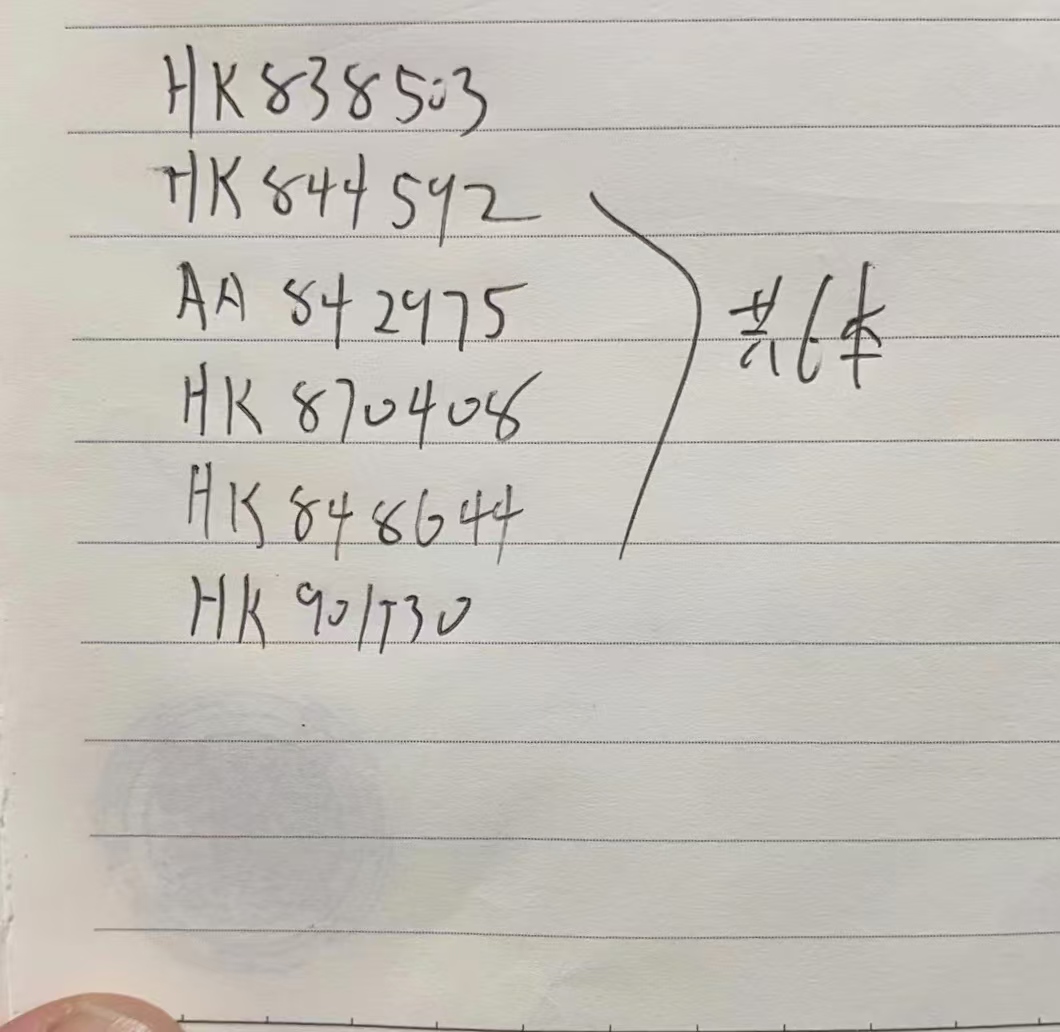 HK 838503
HK 844592
AA 842975
HK 870408
HK 848644
HK 901730
共6本